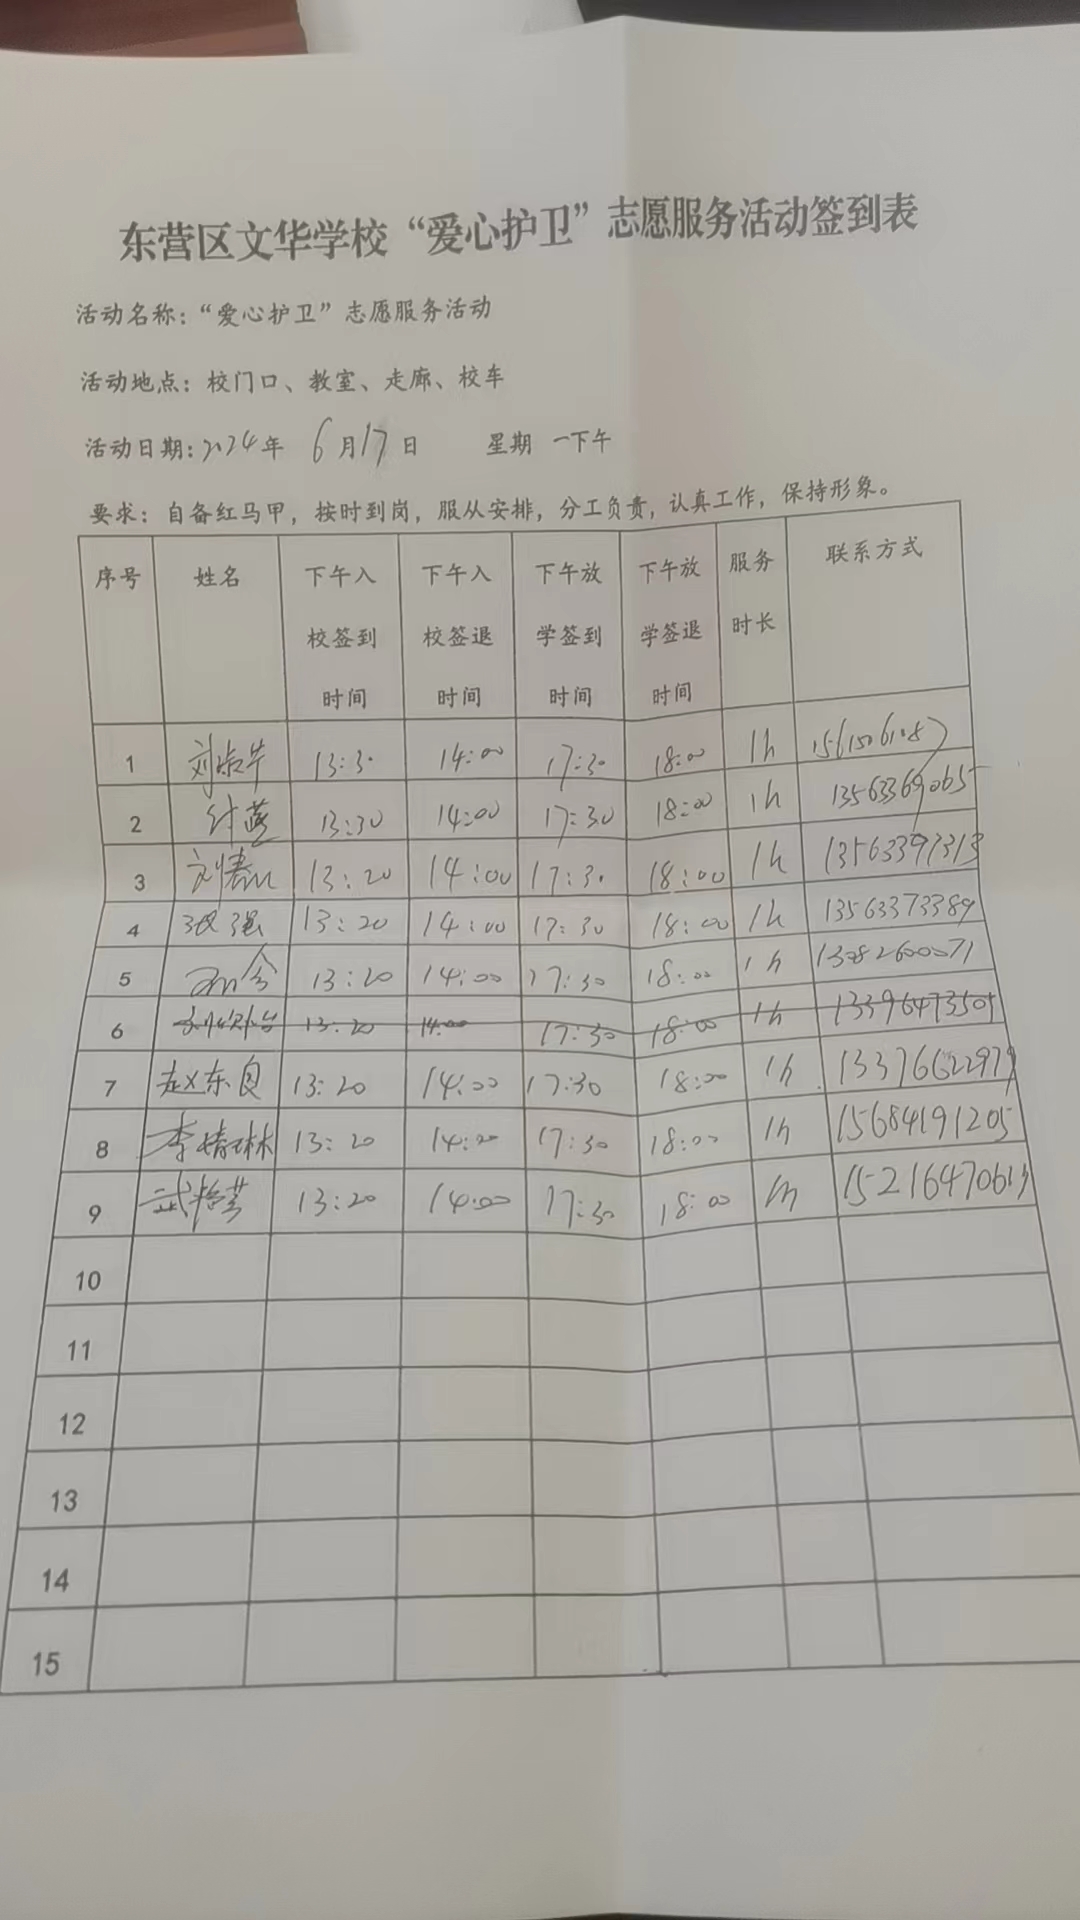 东营区文华学校“爱心护卫”志愿服务活动签到表
活动名称：“爱心护卫”志愿服务活动
活动地点：校门口、教室、走廊、校车
活动日期：2024年 6月17日 星期 一下午
要求：自备红马甲，按时到岗，服从安排，分工负责，认真工作，保持形象。
序号 姓名 下午入校签到时间 下午入校签退时间 下午放学签到时间 下午放学签退时间 服务时长 联系方式
1 13:30 14:00 17:30 18:00 1h
2 13:30 14:00 17:30 18:00 1h 13563369065
3 13:20 14:00 17:30 18:00 1h 13563397313
4 张强 13:20 14:00 17:30 18:00 1h 13563373389
5 13:20 14:00 17:30 18:00 1h
6 13:20 14:00 17:30 18:00 1h 13396473505
7 赵东良 13:20 14:00 17:30 18:00 1h 13376622979
8 李婧琳 13:20 14:00 17:30 18:00 1h 15684191205
9 13:20 14:00 17:30 18:00 1h
10
11
12
13
14
15